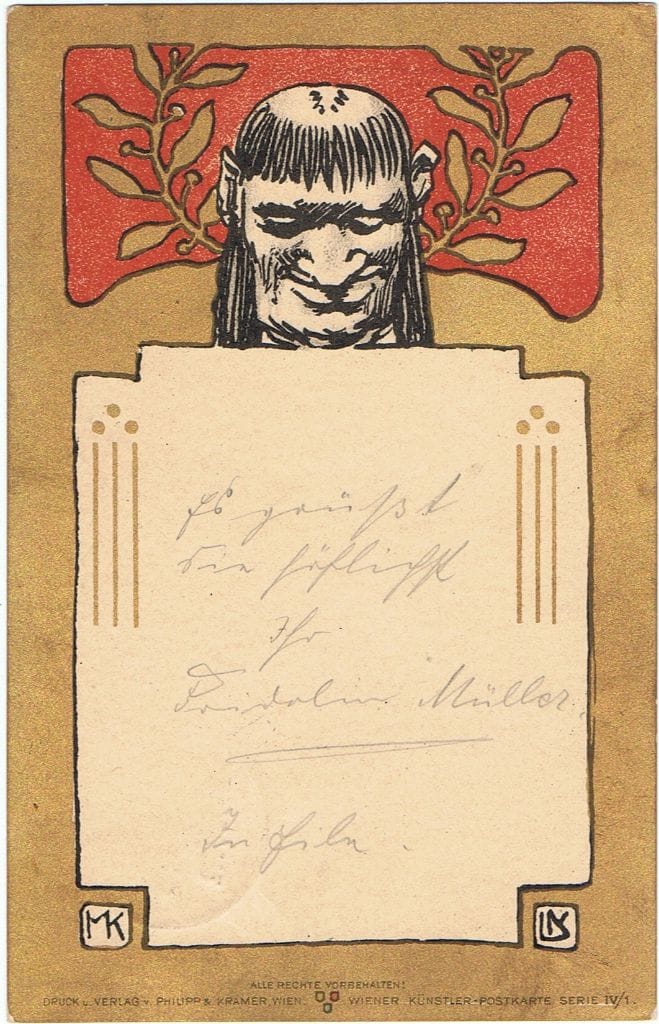 Es grüßt
Sie höflichst
Ihr
Fridolin Müller.
In Eile.
MK
ALLE RECHTE VORBEHALTEN!
DRUCK u. VERLAG v. PHILIPP & KRAMER, WIEN. WIENER KÜNSTLER-POSTKARTE SERIE IV/1.